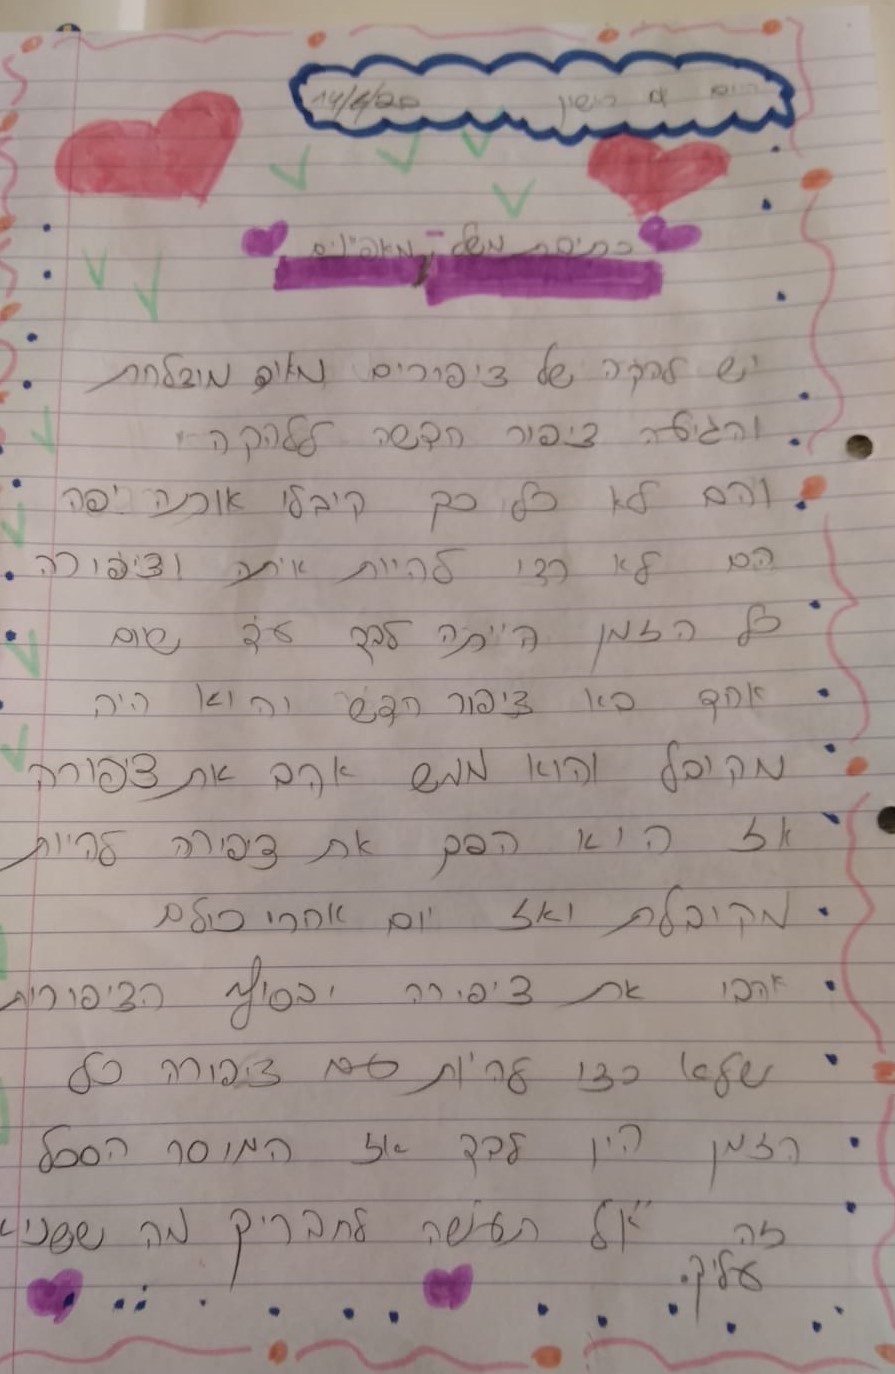 היום יום ראשון 14/6/20
כתיבת משל - מאפינים
יש להקה של ציפורים מאוד מוצלחת
והגיעה ציפור חדשה ללהקה
והם לא כל כך קיבלו אותה יפה
הם לא רצו להיות איתה וציפורה
כל הזמן הייתה לבד עד שיום
אחד בא ציפור חדש והוא היה
מקובל והוא ממש אהב את ציפורה
אז הוא הפך את ציפורה להיות
מקובלת ואז יום אחרי כולם
אהבו את ציפורה ובסוף הציפורים
שלא רצו להיות עם ציפורה כל
הזמן היו לבד אז המוסר השכל
זה "אל תעשה לחבריך מה ששנוי
עליך.